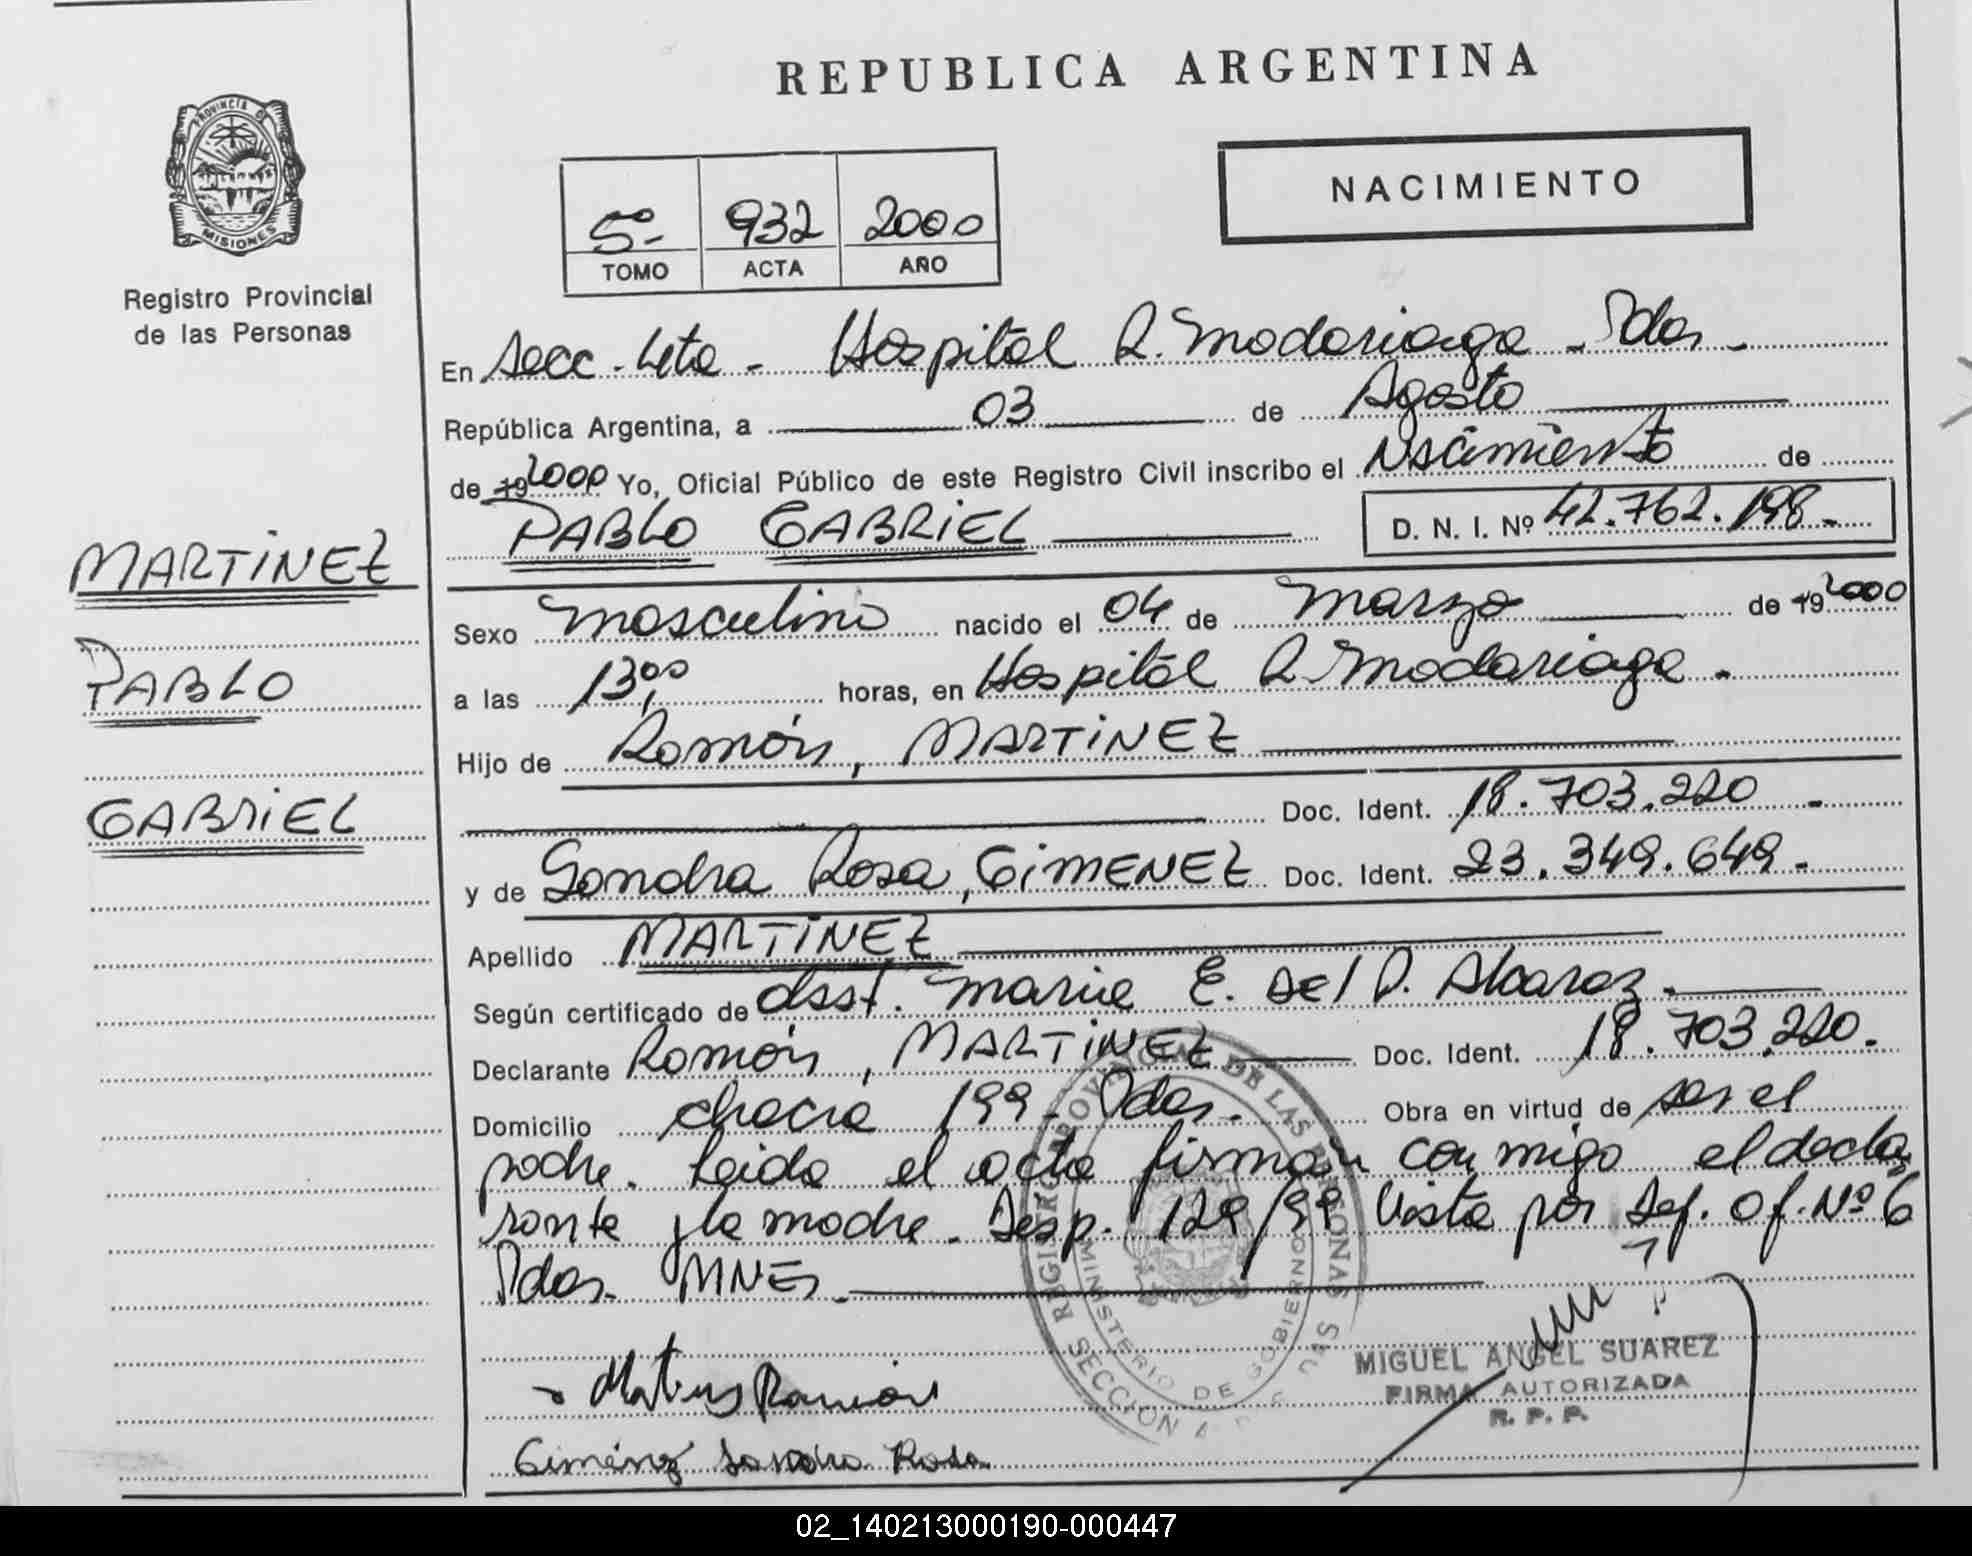 REPUBLICA ARGENTINA
PROVINCIA DE
MISIONES
Registro Provincial
de las Personas
NACIMIENTO
5º- 932 2000
TOMO ACTA AÑO
En Secc. 4ta - Hospital R. Madariaga - Pdas -
República Argentina, a 03 de Agosto
de 19 2000 Yo, Oficial Público de este Registro Civil inscribo el Nacimiento de
PABLO GABRIEL D. N. I. Nº 42.762.198.-
MARTINEZ
PABLO
GABRIEL
Sexo Masculino nacido el 04 de Marzo de 19 2000
a las 13,00 horas, en Hospital R Madariaga.
Hijo de Ramón, MARTINEZ
Doc. Ident. 18.703.220.-
y de Sandra Rosa, GIMENEZ Doc. Ident. 23.349.649.-
Apellido MARTINEZ
Según certificado de Obst. Maria E. del P. Alcaraz.
Declarante Ramón, MARTINEZ Doc. Ident. 18.703.220.
Domicilio chacra 199 - Pdas. Obra en virtud de ser el
padre. Leida el acta firman conmigo el decla
rante y la madre. Desp. 129/99 Vista por Def. Of. Nº 6
Pdas. MNES.
REGISTRO PROVINCIAL DE LAS PERSONAS
MINISTERIO DE GOBIERNO
SECCION 4
MIGUEL ANGEL SUAREZ
FIRMA AUTORIZADA
R. P. P.
Ramón
Giménez Sandra Rosa
02_140213000190-000447